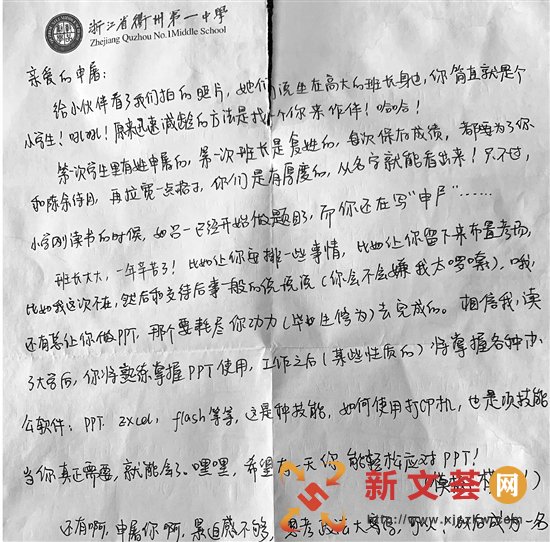 浙江省衢州第一中学
Zhejiang Quzhou No.1 Middle School
亲爱的申屠:
给小伙伴看了我们拍的照片,她们说坐在高大的班长身边,你简直就是个
小学生!吼吼!原来迅速减龄的方法是找个你来作伴!哈哈!
第一次学生里有姓申屠的,第一次班长是复姓的,每次保存成绩,都要为了你
和陈余待月,再拉宽一点格子,你们是有厚度的,从名字就能看出来!只不过,
小学刚读书的时候,如吕一已经开始做题目了,而你还在写“申尸”……
班长大大,一年辛苦了!比如让你安排一些事情,比如让你留下来布置考场,
比如我这次不在,然后和交待后事一般的说说说(你会不会嫌我太啰嗦)。哦,
还有总让你做PPT,那个要耗尽你功力(毕生修为)去完成的。相信我,读
了大学后,你将熟练掌握PPT使用,工作之后(某些性质的)将掌握各种办
公软件:PPT. excel, flash等等,这是种技能,如何使用打印机,也是项技能
当你真正需要,就能会了。嘿嘿,希望有一天你能轻松应对PPT!
还有啊,申屠你啊,紧迫感不够,
新文荟网
www.xinzkw.com